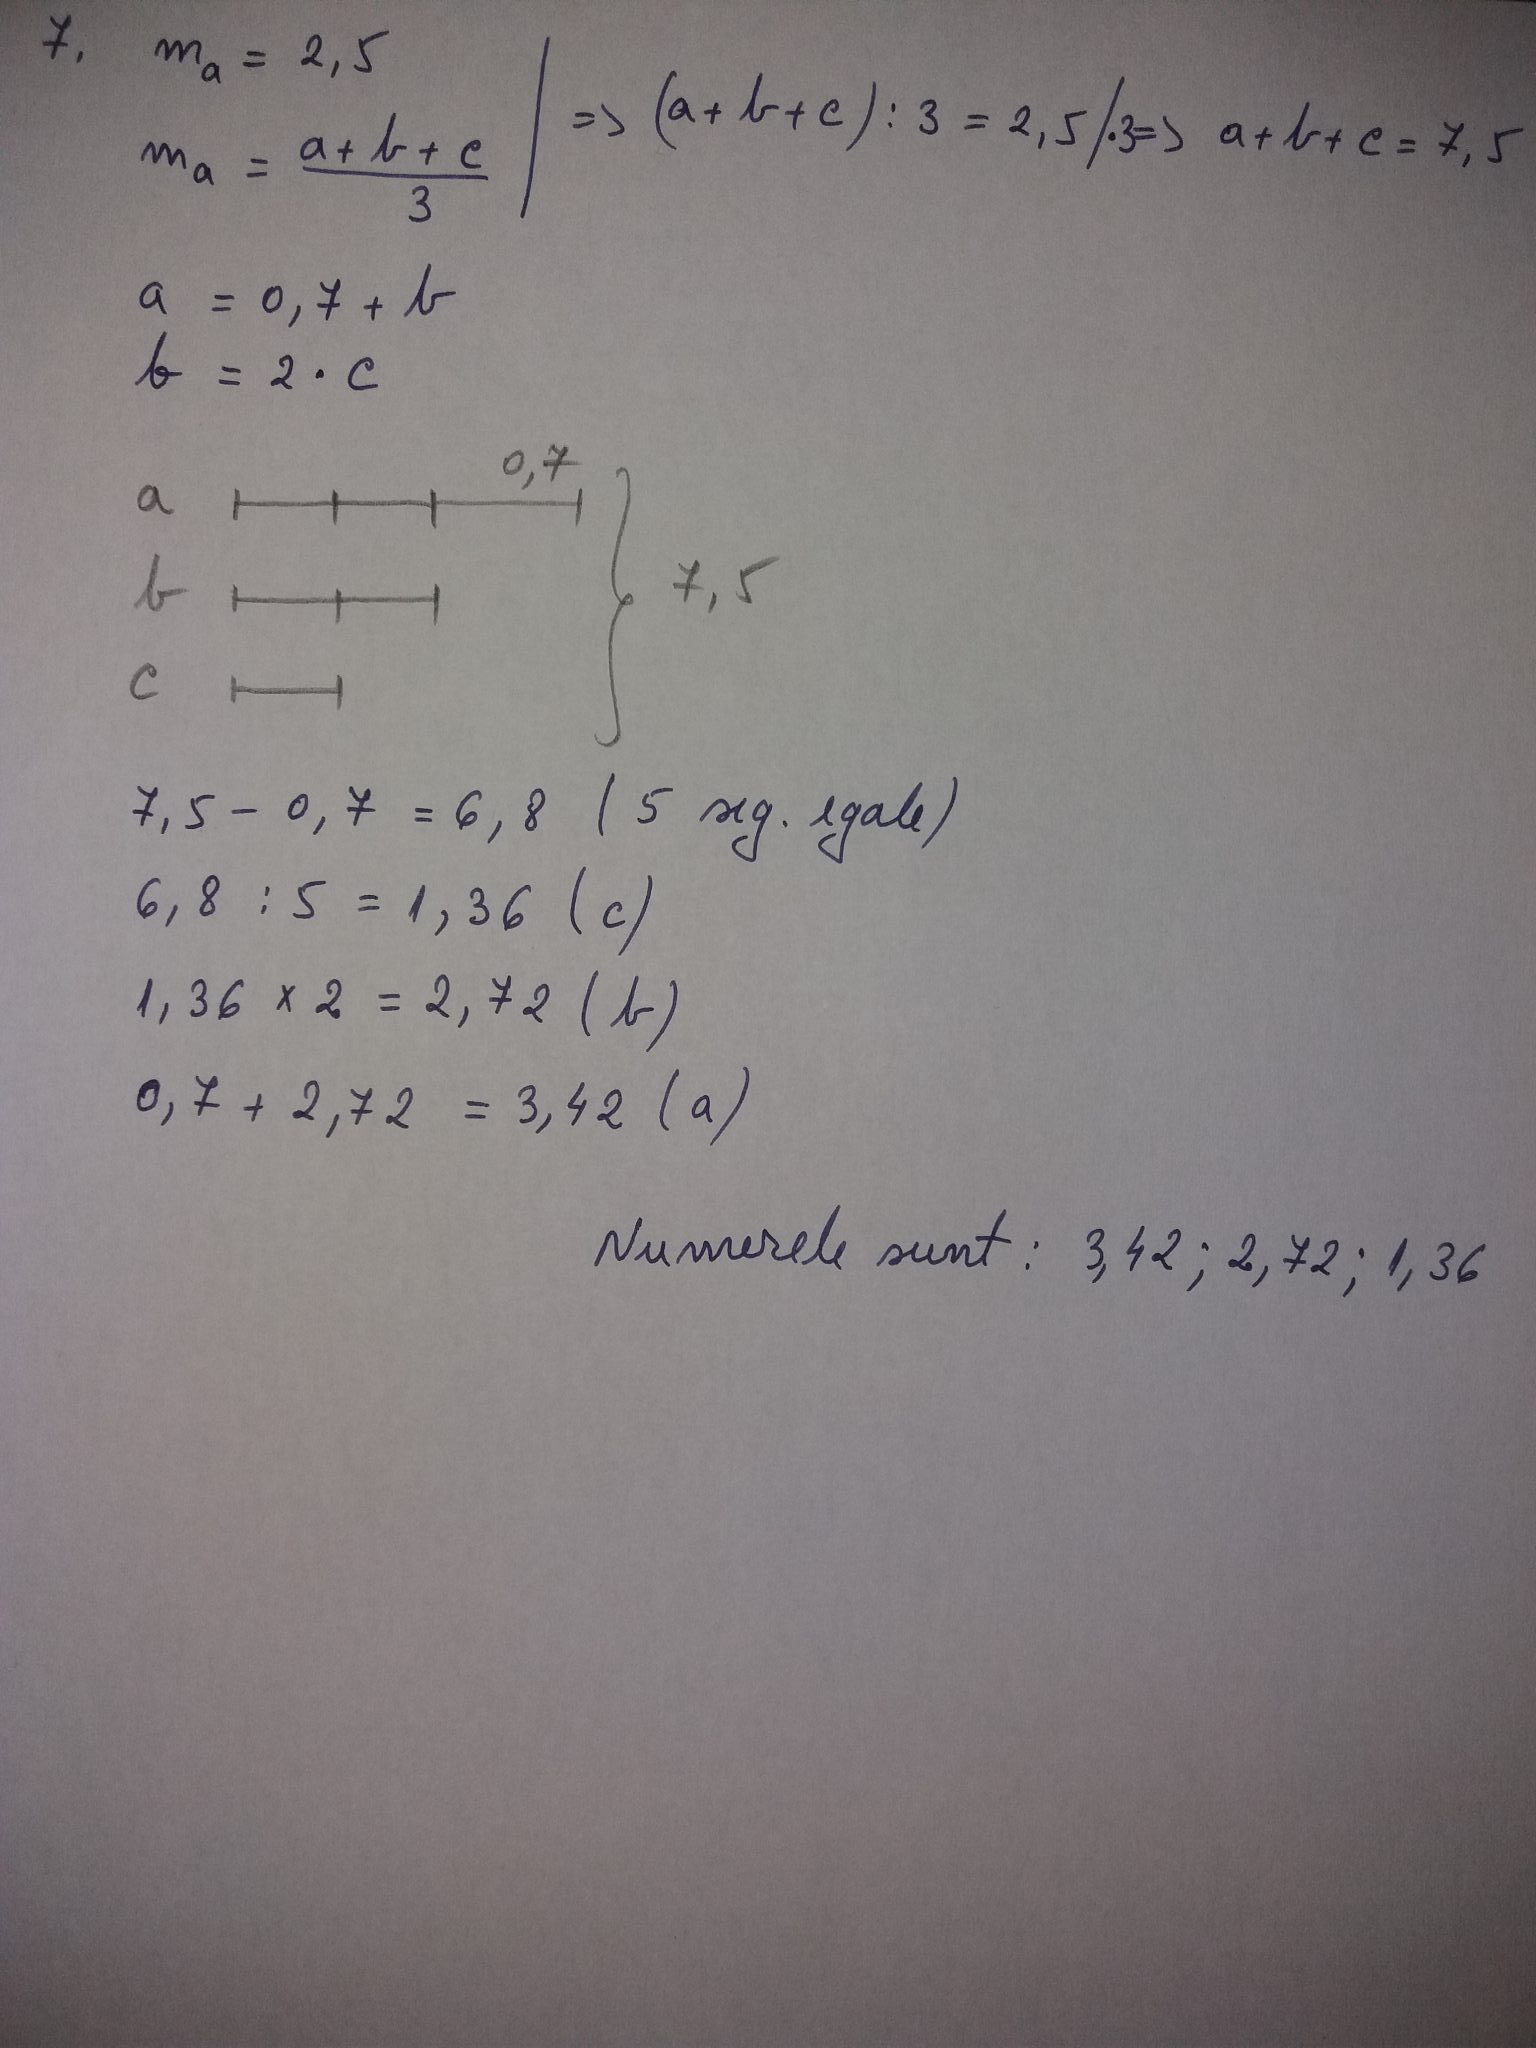 7. mₐ = 2,5
mₐ = (a + b + c)/3 | => (a + b + c) : 3 = 2,5 /·3 => a + b + c = 7,5
a = 0,7 + b
b = 2 · c
0,7
a
b
7,5
c
7,5 - 0,7 = 6,8 (5 seg. egale)
6,8 : 5 = 1,36 (c)
1,36 x 2 = 2,72 (b)
0,7 + 2,72 = 3,42 (a)
Numerele sunt: 3,42; 2,72; 1,36